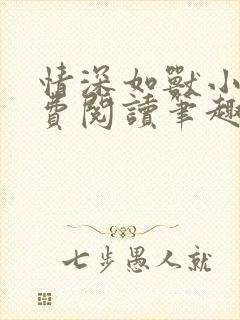 情深如獸小
費閱讀筆趣
七步愚人就